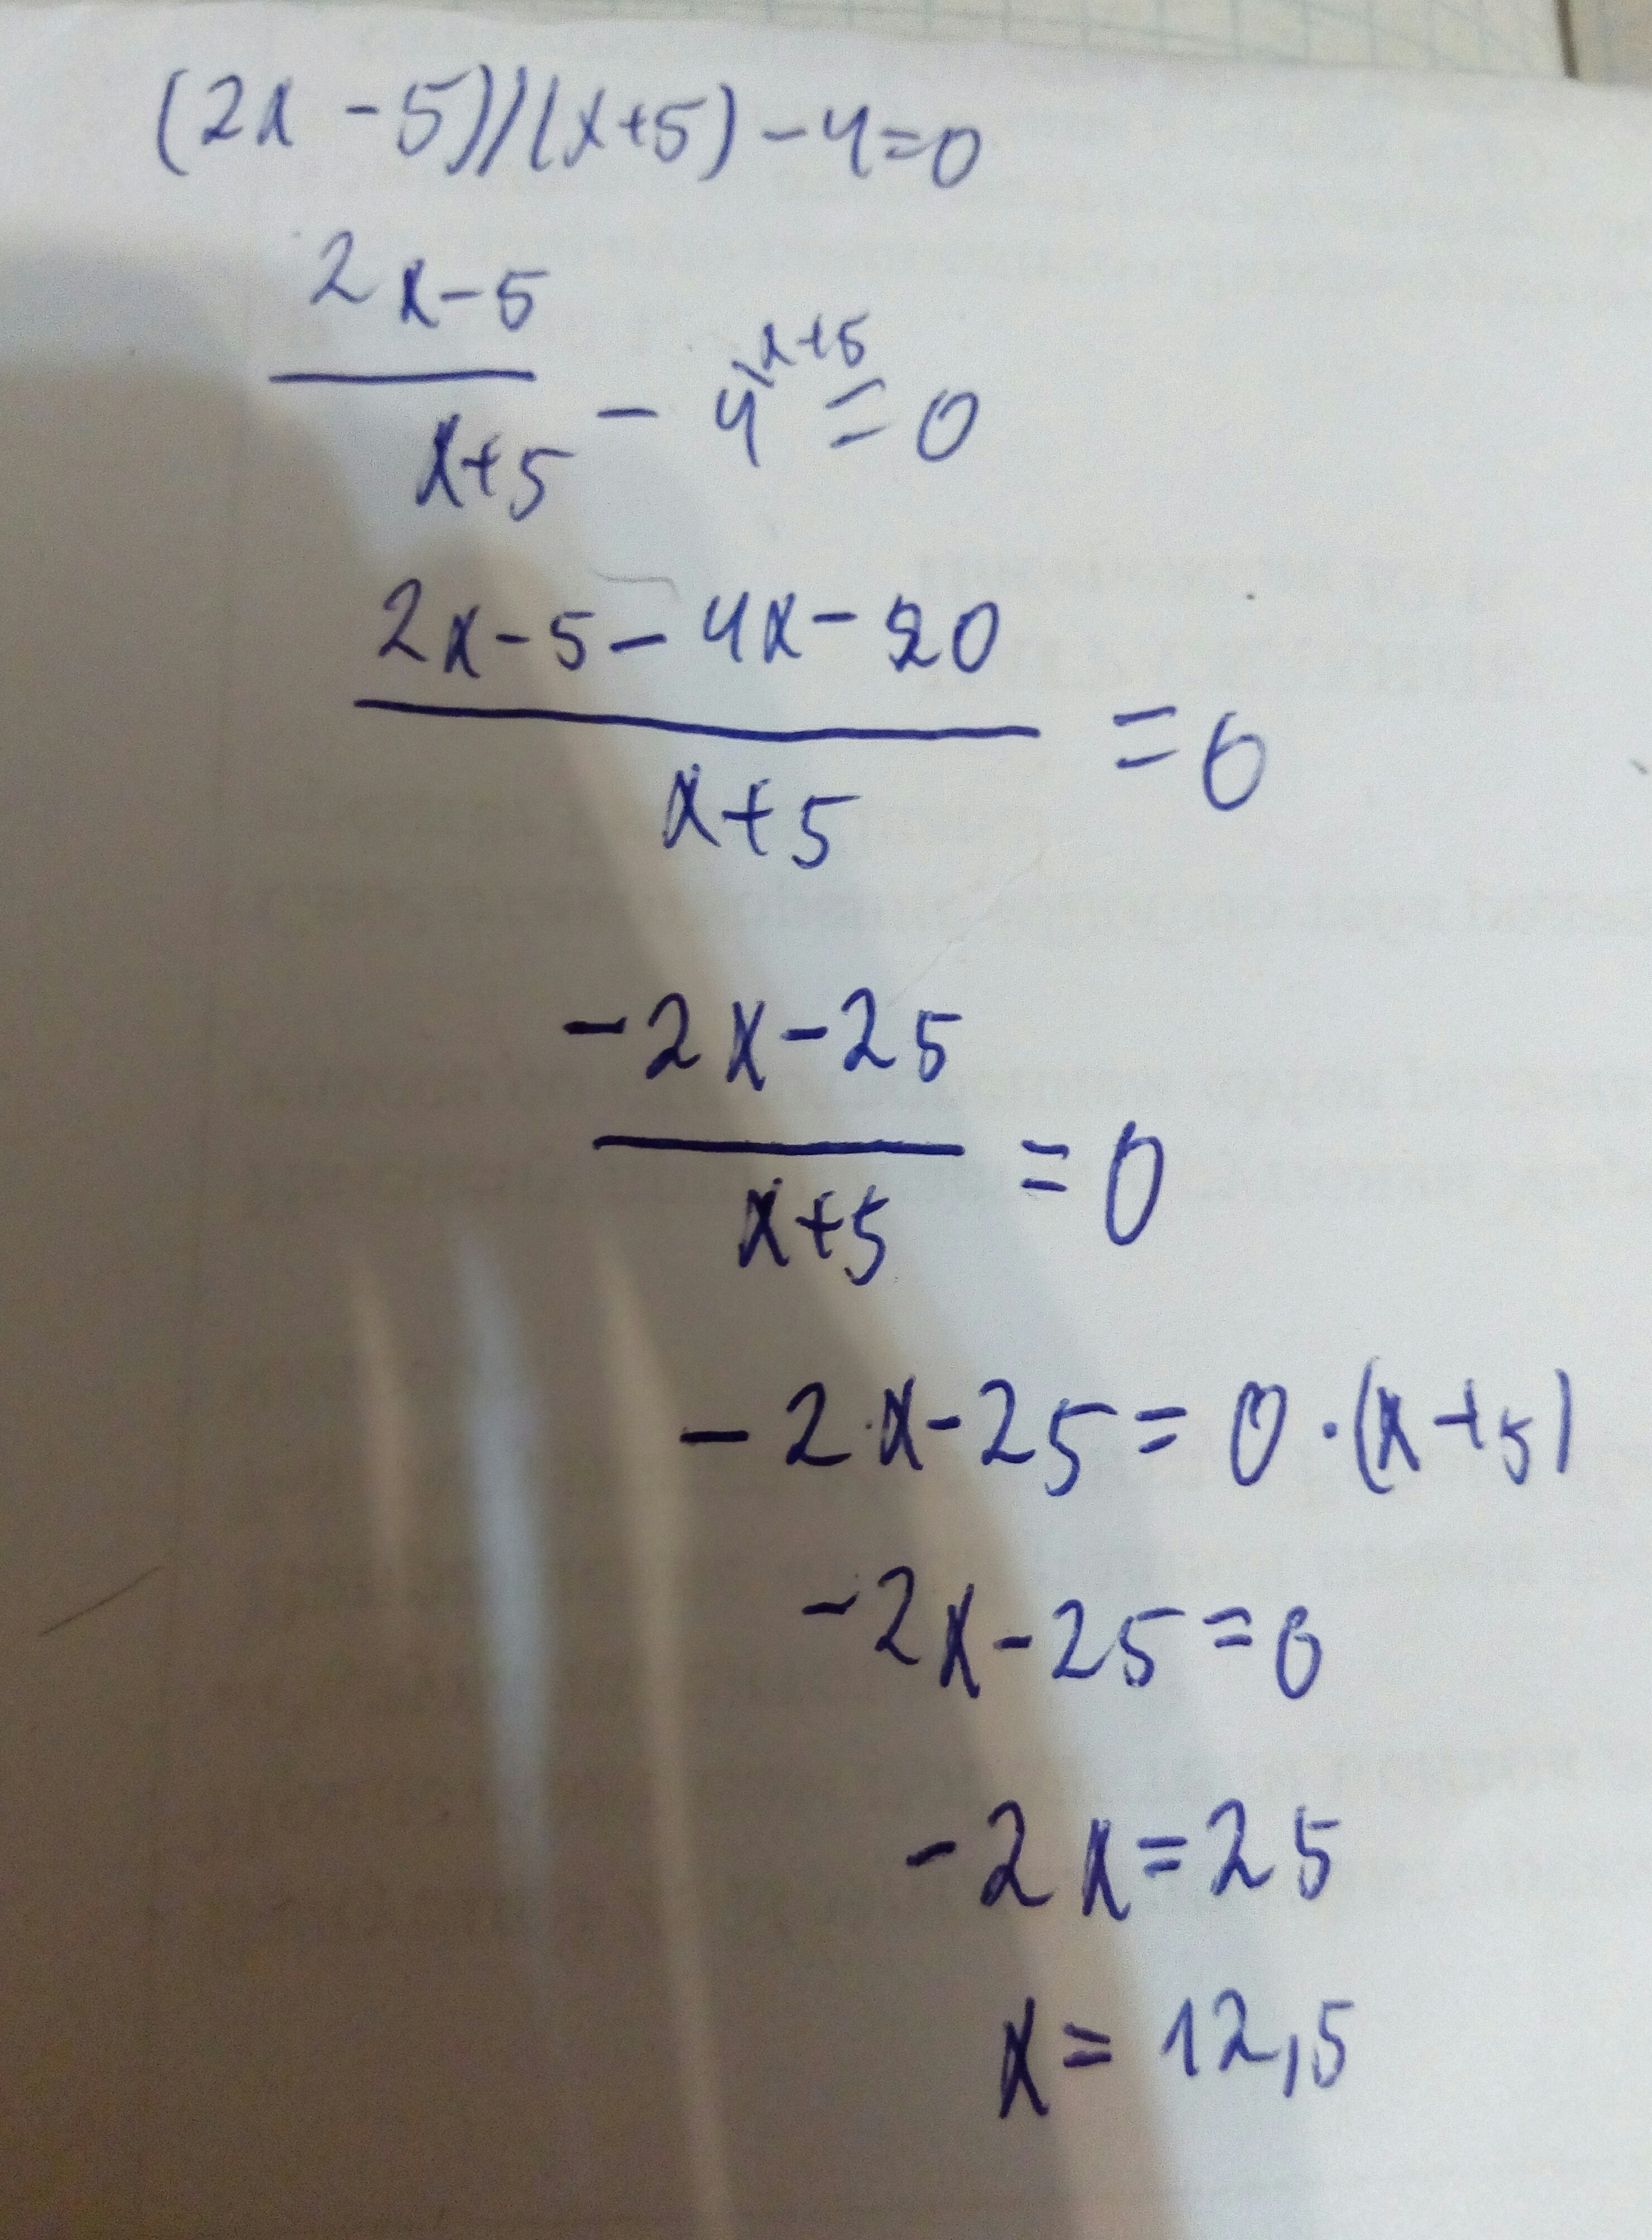 (2x - 5)/(x+5) - 4 = 0
2x - 5
x+5
- 4^{\x+5} = 0
2x - 5 - 4x - 20
x+5
= 0
-2x - 25
x+5
= 0
-2x - 25 = 0 · (x+5)
-2x - 25 = 0
-2x = 25
x = 12,5